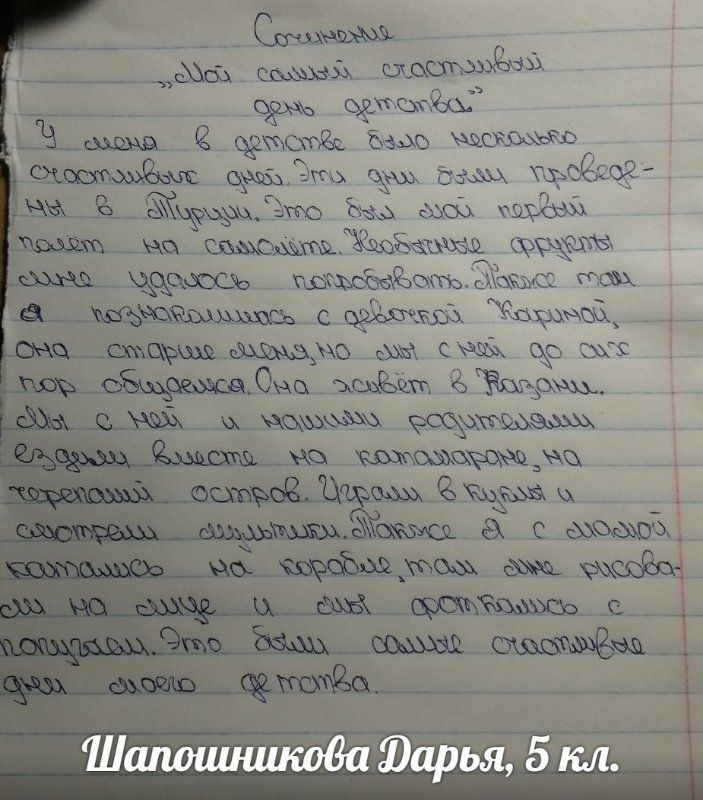 Сочинение
„Мой самый счастливый
день детства"
У меня в детстве было несколько
счастливых дней. Эти дни были проведе-
ны в Турции. Это был мой первый
полёт на самолёте. Необычные фрукты
мне удалось попробывать. Также там
я познакомилась с девочкой Кариной,
она старше меня, но мы с ней до сих
пор общаемся. Она живёт в Казани.
Мы с ней и нашими родителями
ездили вместе на катамаране, на
черепаший остров. Играли в куклы и
смотрели мультики. Также я с мамой
катались на корабле, там мне рисова-
ли на лице и мы фоткались с
попугаем. Это были самые счастливые
дни моего детства.
Шапошникова Дарья, 5 кл.